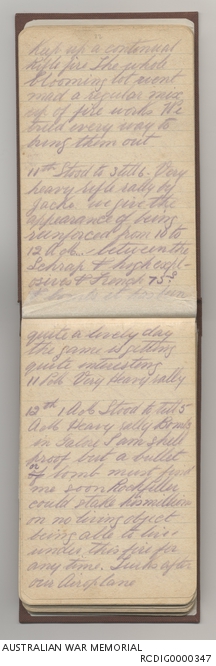 Keep up a continual
rifle fire The whole
blooming lot went
mad a regular mix
up of fire works We
tried every way to
bring them out
11th Stood to 3 till 6. Very
heavy rifle rally by
Jacko we give the
appearance of being
reinforced from 10 to
12 A o/c between the
Schrap & high expl-
osives & French 75s
quite a lovely day
the game is getting
quite interesting
11 Pok Very Heavy rally
12th 1 Aok Stood to till 5
Aok Heavy rally Bombs
in Galore I am shell
proof but a bullet
or bomb must find
me soon Rockfeller
could stake his millions
on no living object
being able to live
under this fire for
any time. Turks after
our Aeroplane
AUSTRALIAN WAR MEMORIAL
RCDIG0000347